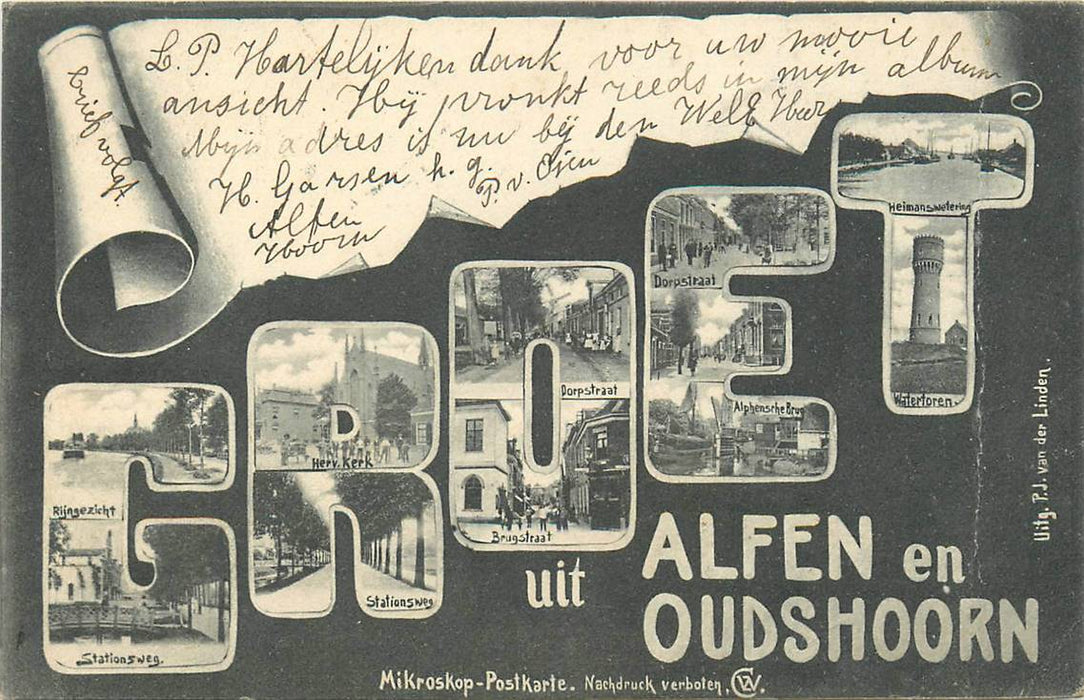 L. P. Hartelijken dank voor uw mooie
ansicht. Hij pronkt reeds in mijn album
Mijn adres is nu bij den WelE Heer
H. Garsen h. g.
P. v. Ojen
Alfen
Hoorn
brief volgt
GROET
Heimanswetering
Watertoren.
Dorpstraat
Alphensche Brug
Dorpstraat
Brugstraat
Herv. Kerk
Stationsweg
Rijngezicht
Stationsweg.
uit
ALFEN en
OUDSHOORN
Uitg. P.J. van der Linden.
Mikroskop-Postkarte. Nachdruck verboten.